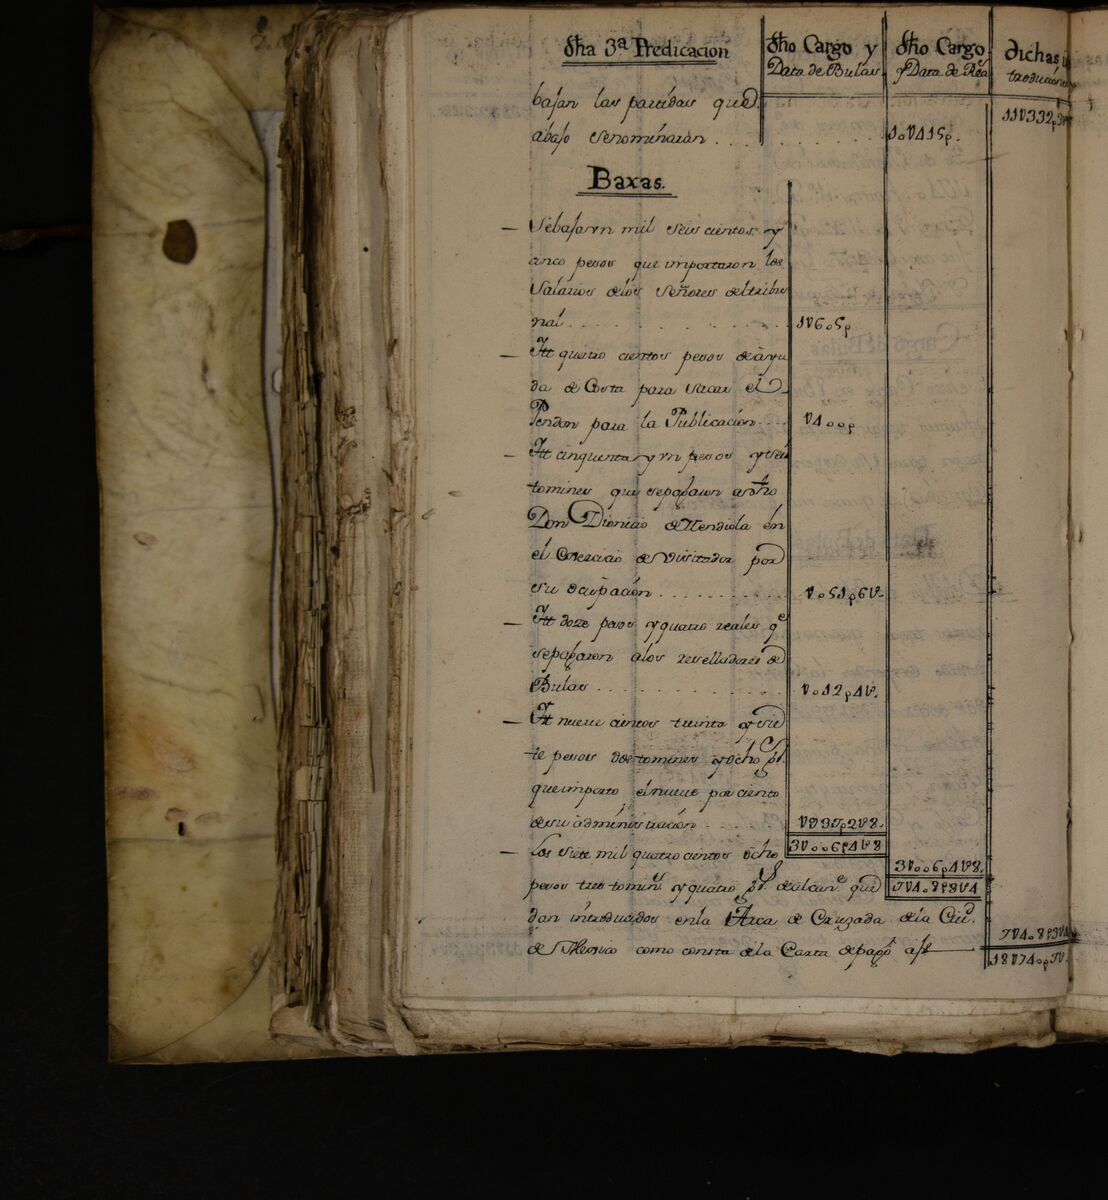 dha 3ª Predicacion
dho Cargo y
Data de Bulas
dho Cargo
y Data de Rs
dichas in
troducion
bajan las partidas que
11U332p3
abajo senominaran . . . . . . 10U415p.
Baxas.
— Sebajan un mil seis cientos y
cinco pesos que importaron los
Salarios delos Señores deltribu
nal . . . . . . 1U605p
— Itt quatro cientos pesos de ayu
da de Costa para sacar el
Pendon para la Publicacion . . . U400p
— Itt cinquenta y un pesos y seis
tomines que sepagaron a dho
Don Dionicio de Mendiola en
el Exercicio de Visitador por
su ocupacion . . . . . . U051p6U.
— Itt doze pesos y quatro reales qe
sepagaron alos reselladores de
Bulas . . . . . . U012p4U.
— Itt nueve cientos treinta y sie
te pesos dos tomines y ocho gs.
que importo el nueve por ciento
desu administracion . . . U937p2U8.
3U006p4U8
— Los siete mil quatro cientos ocho
3U006p4U8.
pesos tres tomins. y quatro gs. de alcane. que
7U408p3U4
dan introducidos en la Arca de Cruzada de la Ciud.
7U408p3U4
de Mexico como consta de la Carta de pago afs
18U740p7U.